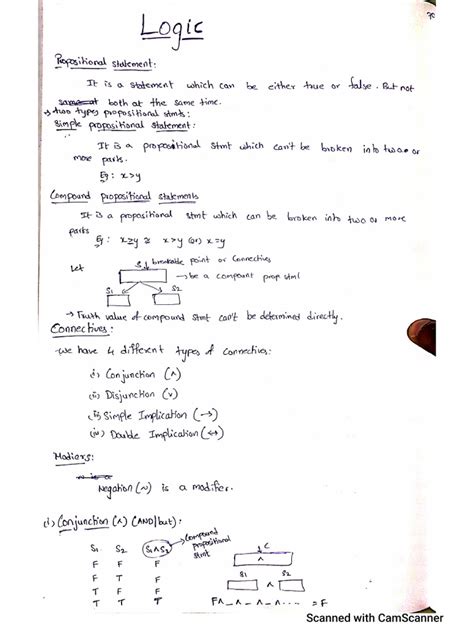 Logic
Propositional statement:
It is a statement which can be either true or false. But not
same at both at the same time.
→ two types propositional stmts:
Simple propositional statement:
It is a propositional stmt which can't be broken into two or
more parts.
Eg: x>y
Compound propositional statements
It is a propositional stmt which can be broken into two or more
parts
Eg: x≥y ≅ x>y (or) x=y
Let S breakable point or Connectives
→ be a compount prop stml
S1 S2
→ Truth value of compound stmt can't be determined directly.
Connectives:
→ we have 4 different types of connectives:
(i) Conjunction (∧)
(ii) Disjunction (∨)
(iii) Simple Implication (→)
(iv) Double Implication (↔)
Modiers:
Negation (~) is a modifier.
(i) Conjunction (∧) (AND/but):
S1 S2 S1∧S2 → Compound propositional stmt
F F F
F T F
T F F
T T T
C
∧
S1 S2
F∧_∧_∧_∧.... = F
Scanned with CamScanner